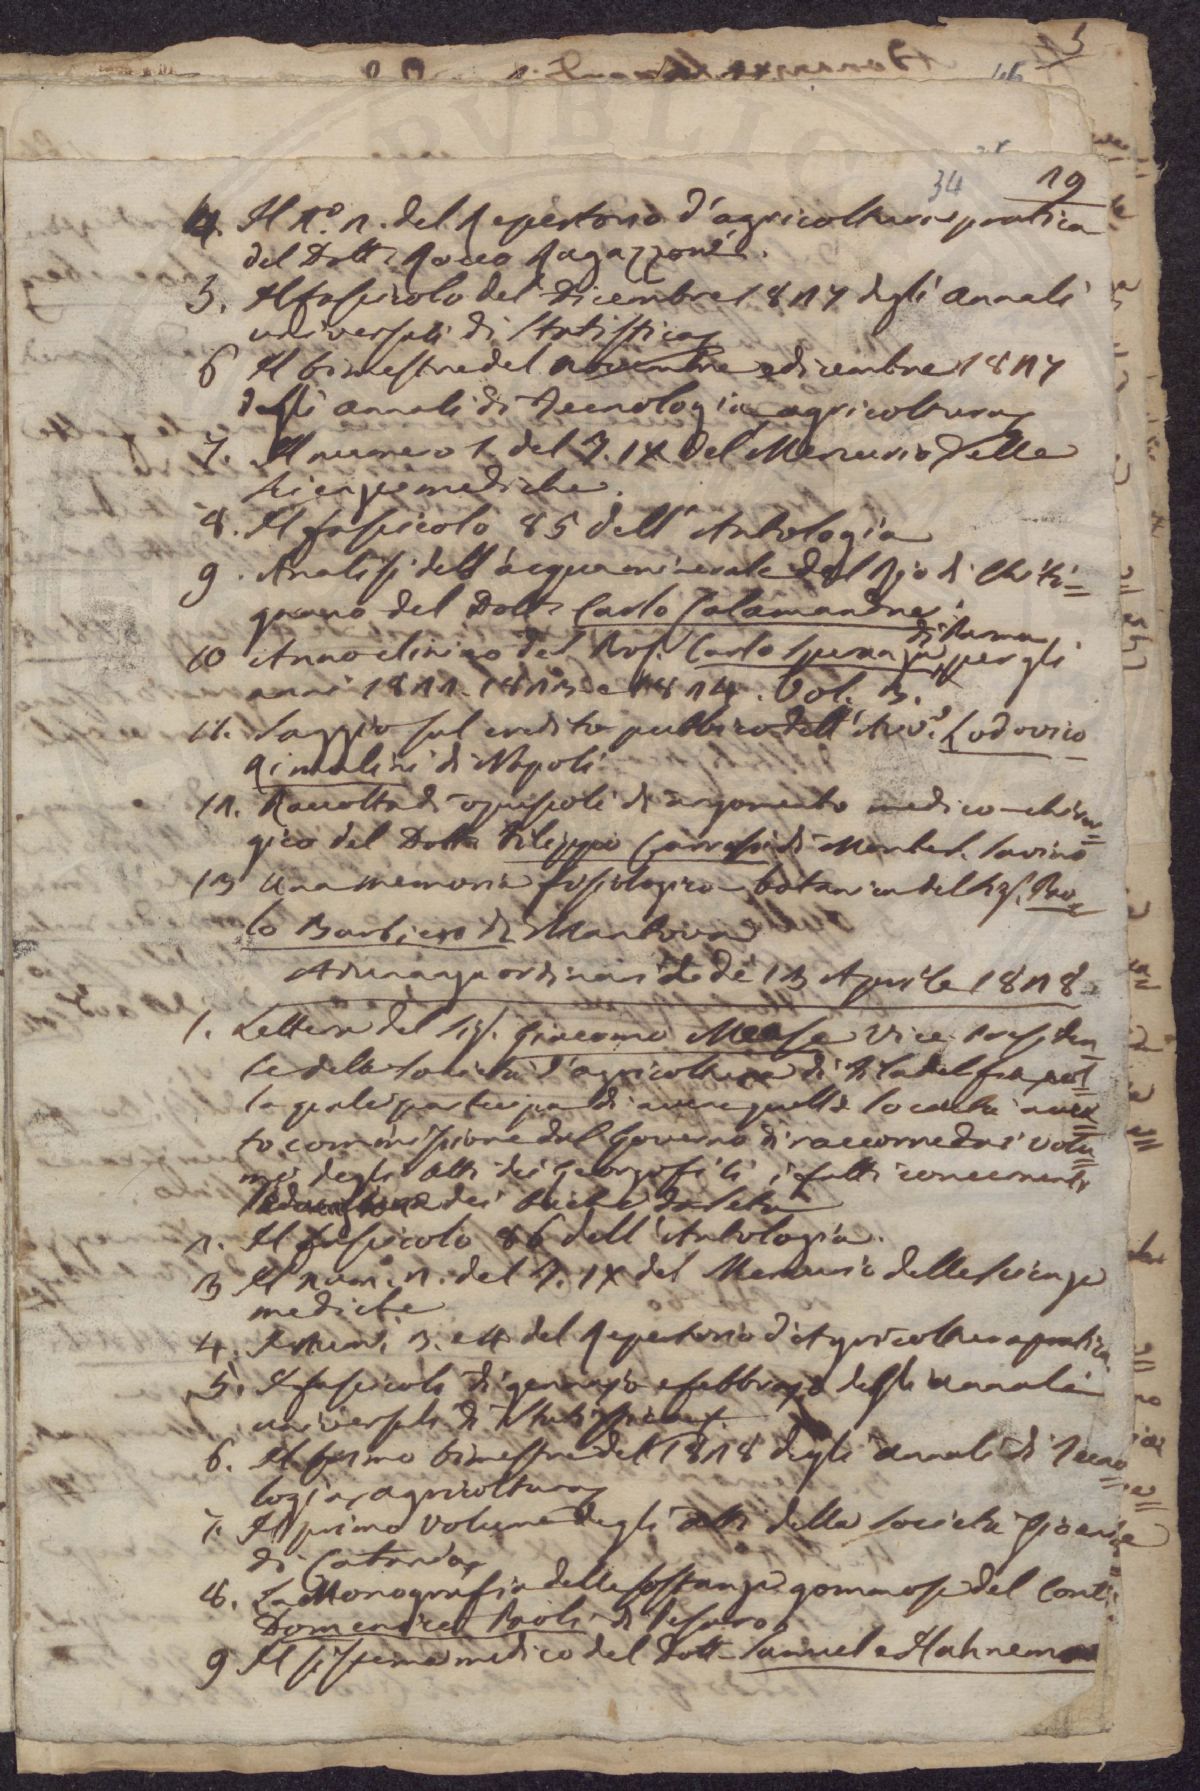 5
34
19
4. Il N.° 2. del Repertorio d'agricoltura pratica
del Dott. Rocco Ragazzoni.
5. Il fascicolo del Dicembre 1827 degli annali
universali di Statistica
6 Il bimestre del Novembre e dicembre 1827
degli annali di Tecnologia, agricoltura
7. Il numero 1. del T. IX del Mercurio delle
scienze mediche.
8. Il fascicolo 85 dell'Antologia
9. Analisi dell'acqua minerale del Rio di Chiti=
gnano del Dott. Carlo Calamandrei.
di Parma
10 Anno clinico del Prof. Carlo Speranza per gli
anni 1822. 1823 e 1824. Vol. 3.
11. Saggio sul credito pubblico dell'Avv.° Lodovico
di Napoli
12. Raccolta di opuscoli di argomento medico-chirur=
gico del Dott. Filippo di Monte S. Savino
13 Una memoria fisiologico-botanica del Sig. Pao=
lo Barbieri di Mantova
Adunanza ordinaria de' 13 Aprile 1828
1. Lettera del Sig. Giacomo Mease Vice Presiden=
te della Società d'agricoltura di Filadelfia, col=
la quale partecipa di avere quella Società avu=
to commissione dal Governo di raccorre dai volu=
mi degli Atti dei Georgofili, i fatti concernenti
l'educazione dei bachi da seta
2. Il fascicolo 86 dell'Antologia.
3 Il num. 2. del T. IX del Mercurio delle scienze
mediche
4. I num. 3. e 4. del Repertorio d'Agricoltura pratica.
5. I fascicoli di gennajo e febbrajo degli annali
universali di Statistica
6. Il primo bimestre del 1828 degli annali di Tecno=
logia, agricoltura
7. Il primo volume degli atti della Società Gioenia
di Catania
8. La Monografia delle sostanze gommose del Conte
Domenico Paoli di Pesaro
9 Il sistema medico del Dott. Samuele Hahneman